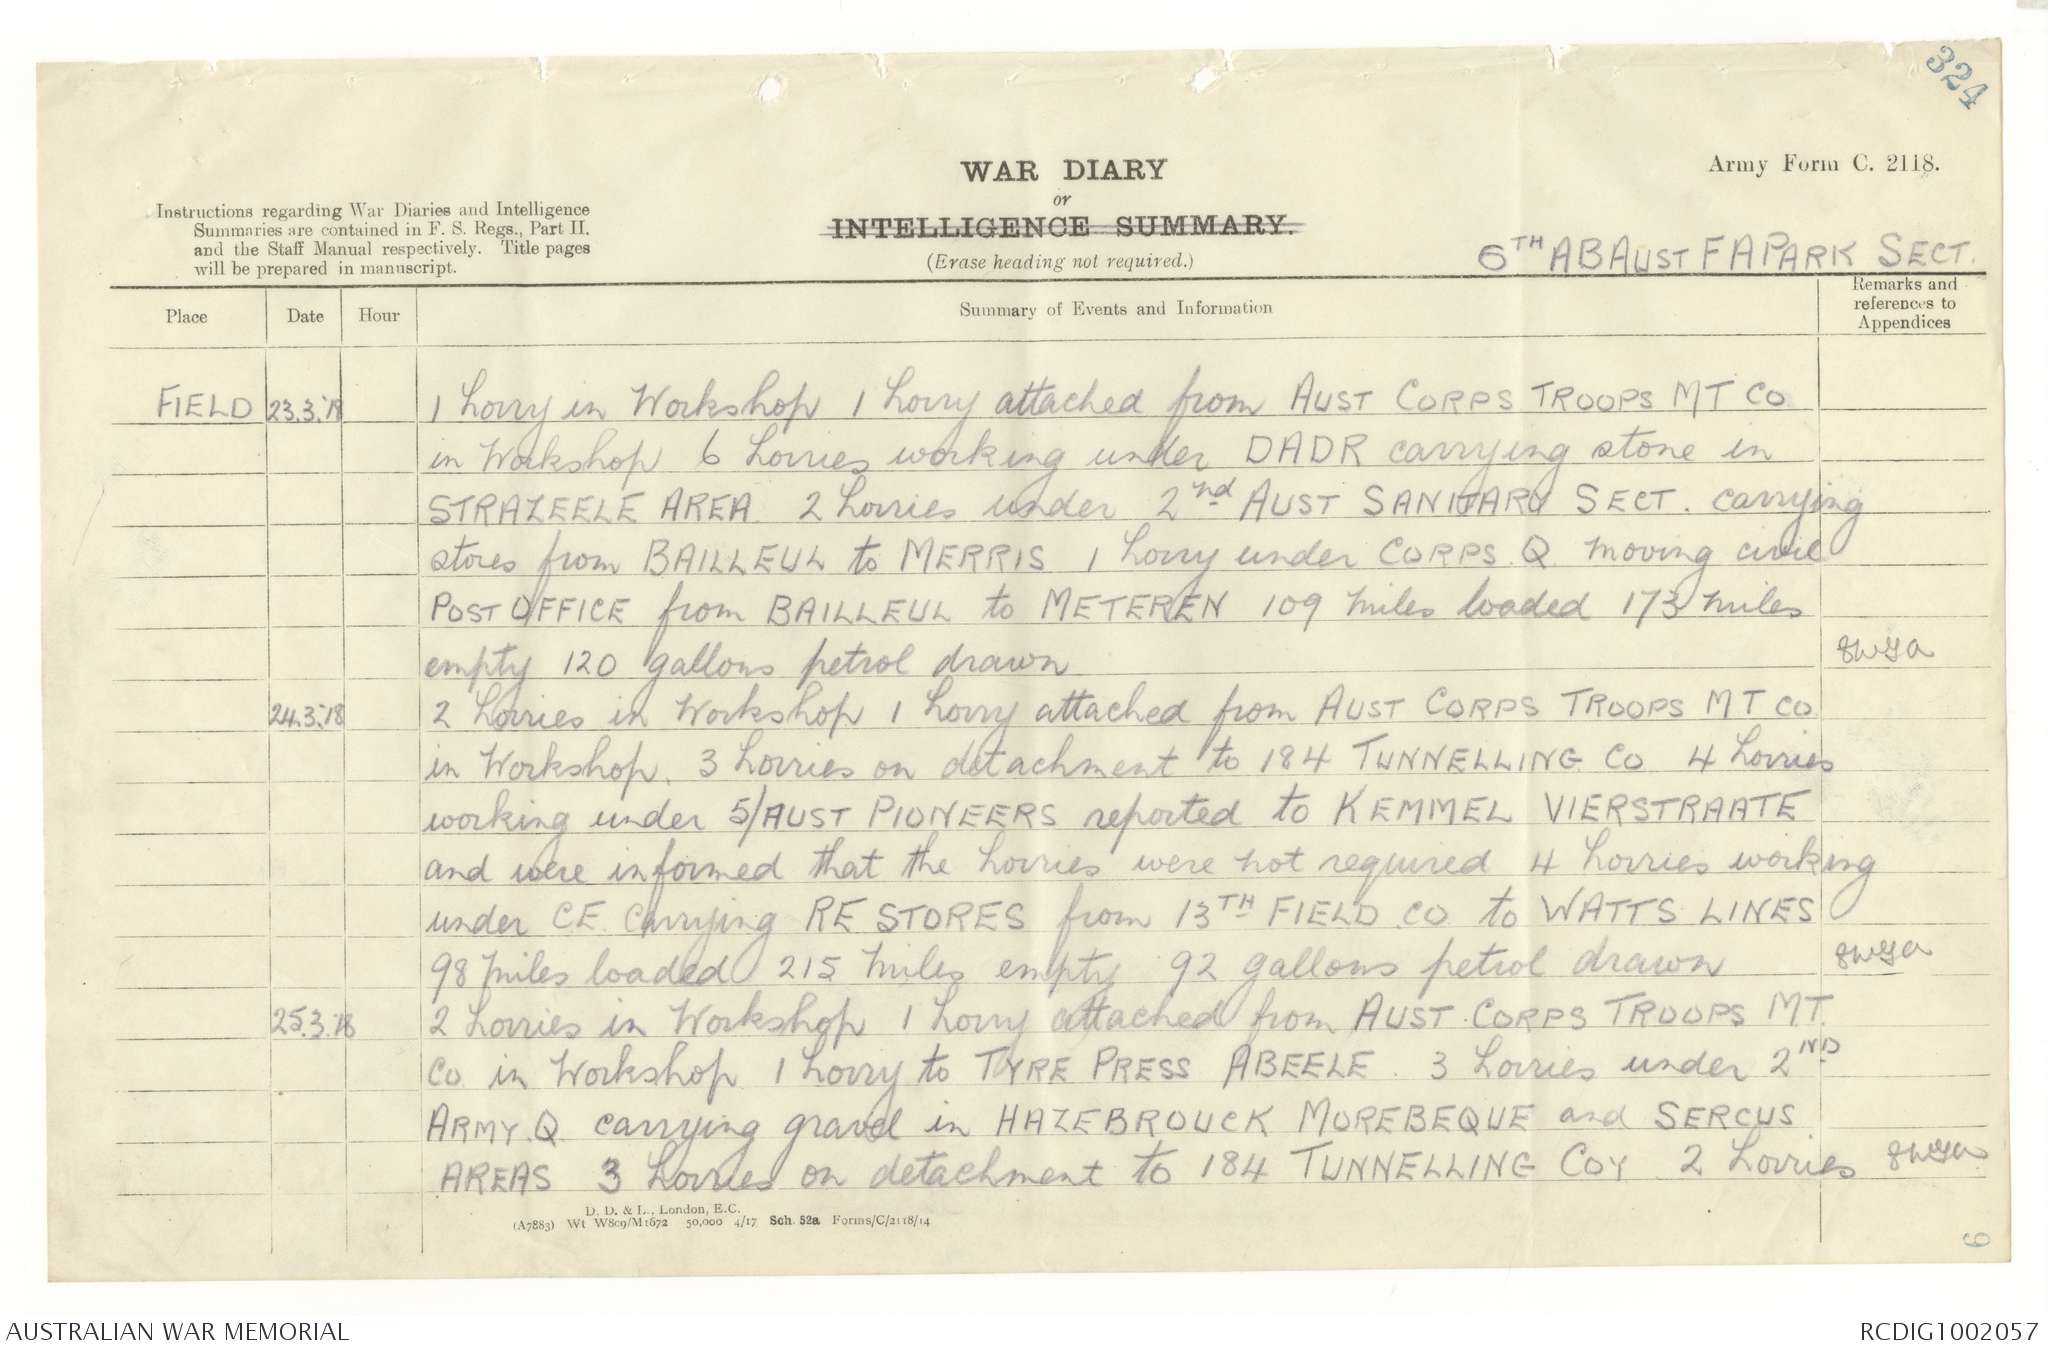 324
WAR DIARY
or
INTELLIGENCE SUMMARY.
(Erase heading not required.)
Army Form C. 2118.
Instructions regarding War Diaries and Intelligence
Summaries are contained in F. S. Regs., Part II.
and the Staff Manual respectively. Title pages
will be prepared in manuscript.
6TH ABAUST F A PARK SECT.
Place
Date
Hour
Summary of Events and Information
Remarks and
references to
Appendices
FIELD 23.3.18 1 Lorry in Workshop 1 Lorry attached from AUST CORPS TROOPS MT CO
in Workshop 6 Lorries working under DADR carrying stone in
STRAZEELE AREA 2 Lorries under 2nd AUST SANITARY SECT. carrying
stores from BAILLEUL to MERRIS 1 Lorry under CORPS Q moving civil
POST OFFICE from BAILLEUL to METEREN 109 miles loaded 173 miles
empty 120 gallons petrol drawn
24.3.18 2 Lorries in Workshop 1 Lorry attached from AUST CORPS TROOPS MT CO
in Workshop. 3 Lorries on detachment to 184 TUNNELLING CO 4 Lorries
working under 5/AUST PIONEERS reported to KEMMEL VIERSTRAATE
and were informed that the Lorries were not required 4 Lorries working
under C.E. carrying RE STORES from 13TH FIELD CO to WATTS LINES
98 miles loaded 215 miles empty 92 gallons petrol drawn
25.3.18 2 Lorries in Workshop 1 Lorry attached from AUST CORPS TROOPS M.T.
Co in Workshop 1 Lorry to TYRE PRESS ABEELE. 3 Lorries under 2ND
ARMY Q carrying gravel in HAZEBROUCK MOREBEQUE and SERCUS
AREAS 3 Lorries on detachment to 184 TUNNELLING COY 2 Lorries
D. D. & L., London, E.C.
(A7883) Wt W809/M1672 50,000 4/17 Sch. 52a Forms/C/2118/14
6
AUSTRALIAN WAR MEMORIAL
RCDIG1002057